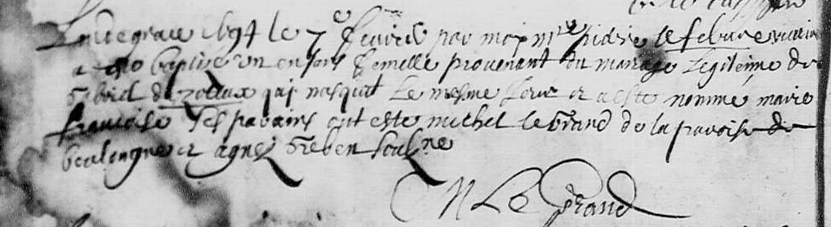 Lan de grace 1694 le 7e feuvrie par moy mre pierre lefebure vicaire
a esté baptisé un enfans femelle provenant du mariage Legitime de
qui nasquit Le mesme Jour et a esté nommé marie
francoise Ses parains ont esté michel legrand de la paroisse de
boulongne et agnes
M Le Grand